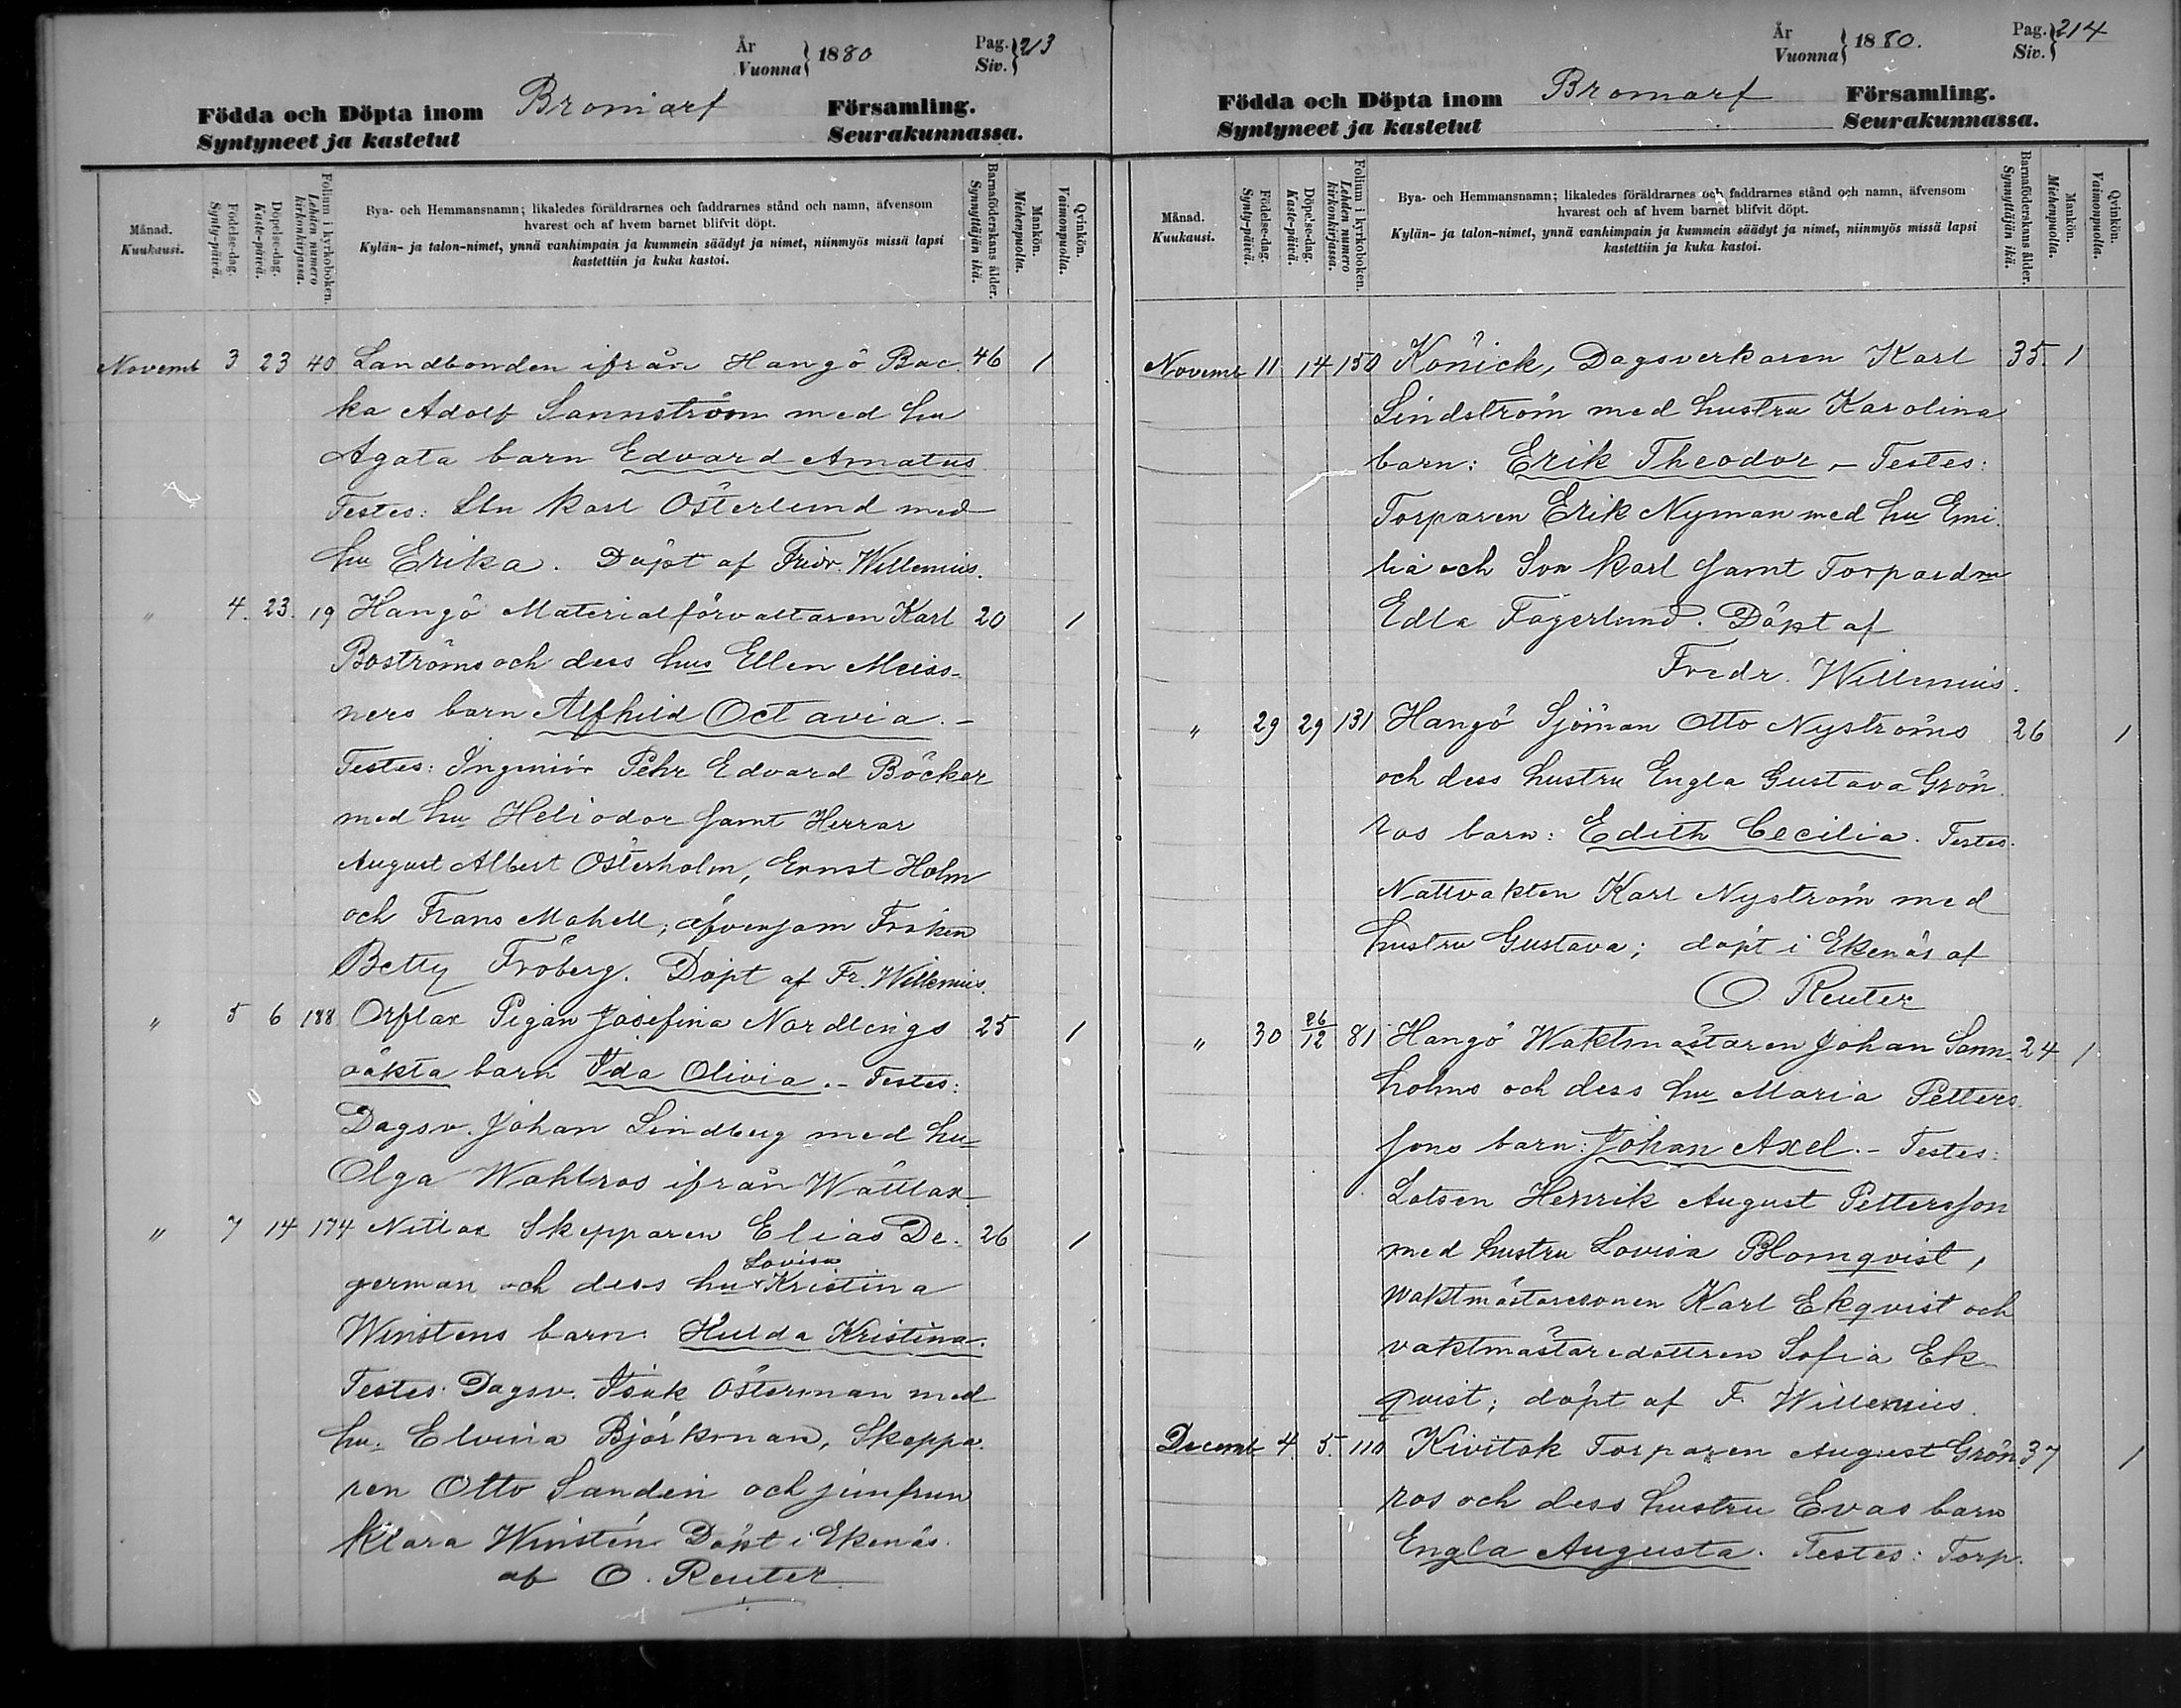 År Vuonna } 1880 Pag. Siv. } 213
Födda och Döpta inom Bromarf Församling.
Syntyneet ja kastetut Seurakunnassa.
Månad. Kuukausi.
Födelse-dag. Synty-päivä.
Döpelse-dag. Kaste-päivä.
Folium i kyrkoboken. Lehden numero kirkonkirjassa.
Bya- och Hemmansnamn; likaledes föräldrarnes och faddrarnes stånd och namn, äfvensom
hvarest och af hvem barnet blifvit döpt.
Kylän- ja talon-nimet, ynnä vanhimpain ja kummein säädyt ja nimet, niinmyös missä lapsi
kastettiin ja kuka kastoi.
Barnaföderskans ålder. Synnyttäjän ikä.
Mankön. Miehenpuolta.
Qvinkön. Vaimonpuolta.
Novemb 3 23 40 Landbonden ifrån Hangö Bac 46 1
ka Adolf Sannström med hu
Agata barn Edvard Amatus
Testes: Karl Österlund med
hu Erika. Döpt af Fredr. Willenius.
" 4. 23. 19 Hangö Materialförvaltaren Karl 20 1
Boströms och dess hus Ellen Meiss-
ners barn Alfhild Octavia.-
Testes: Ingeniör Pehr Edvard Böcker
med hu Heliodor samt Herrar
August Albert Österholm, Ernst Holm
och Frans Mahell; äfvensom Fröken
Betty Fröberg. Döpt af Fr. Willenius.
" 5 6 188 Orflax Pigan Josefina Nordlings 25 1
oäkta barn Ida Olivia.- Testes:
Dagsv. Johan Lindberg med hu
Olga Wahlros ifrån Wättlax
" 7 14 174 Nitlax Skepparen Elias De- 26 1
german och dess hu Lovisa Kristina
Winstens barn: Hulda Kristina.
Testes: Dagsv. Isak Österman med
hu. Elvina Björkman, Skeppa-
ren Otto Sandin och jungfrun
Klara Winstén Döpt i Ekenäs
af O. Reuter
År Vuonna } 1880. Pag. Siv. } 214
Födda och Döpta inom Bromarf Församling.
Syntyneet ja kastetut Seurakunnassa.
Månad. Kuukausi.
Födelse-dag. Synty-päivä.
Döpelse-dag. Kaste-päivä.
Folium i kyrkoboken. Lehden numero kirkonkirjassa.
Bya- och Hemmansnamn; likaledes föräldrarnes och faddrarnes stånd och namn, äfvensom
hvarest och af hvem barnet blifvit döpt.
Kylän- ja talon-nimet, ynnä vanhimpain ja kummein säädyt ja nimet, niinmyös missä lapsi
kastettiin ja kuka kastoi.
Barnaföderskans ålder. Synnyttäjän ikä.
Mankön. Miehenpuolta.
Qvinkön. Vaimonpuolta.
Novemb 11 14 150 Könick, Dagsverkaren Karl 35. 1
Lindström med hustru Karolina
barn: Erik Theodor - Testes:
Torparen Erik Nyman med hu Emi-
lia och Son Karl samt
Edla Fagerlund. Döpt af
Fredr. Willenius.
" 29 29 131 Hangö Sjöman Otto Nyströms 26 1
och dess hustru Engla Gustava Grön
ros barn: Edith Cecilia. Testes.
Nattvakten Karl Nyström med
hustru Gustava; döpt i Ekenäs af
O Reuter
" 30 26/12 81 Hangö Waktmästaren Johan Sann 24 1
holms och dess hu Maria Petters
sons barn: Johan Axel.- Testes:
Lotsen Henrik August Pettersson
med hustru Lovisa Blomqvist,
waktmästaresonen Karl Ekqvist och
vaktmästaredottren Sofia Ek-
qvist; döpt af F. Willenius.
Decemb 4. 5. 110 Kivitok Torparen August Grön 37 1
ros och dess hustru Evas barn
Engla Augusta. Testes: Torp.